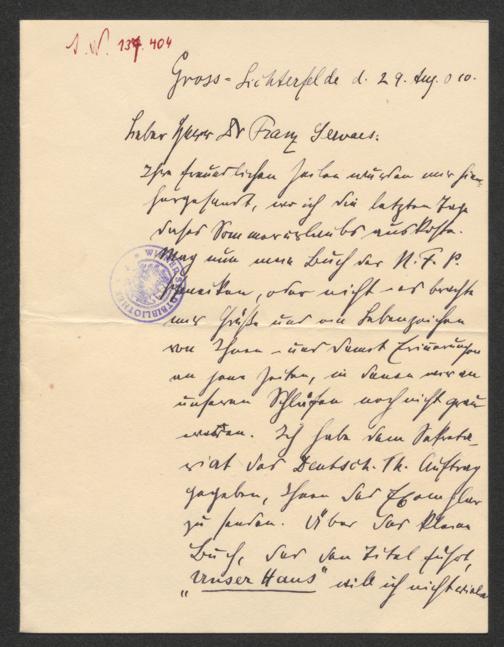 I. N. 137.404
Gross-Lichterfelde d. 29. Aug. 010.
Lieber Herr Dr Franz Servaes:
Ihre freundlichen Zeilen wurden mir hier
hergesandt, wo ich die letzten Tage
dieses Sommerurlaubs auskoste.
Mag nun mein Buch der N. F. P.
oder nicht – es brachte
mir Grüße und ein Lebenszeichen
von Ihnen – und damit Erinnerungen
an jene Zeiten, in denen wir an
unseren Schläfen noch nicht grau
wurden. Ich habe dem Sekreta-
riat des Deutsch. Th. Auftrag
gegeben, Ihnen das Exemplar
zu senden. Über das kleine
Buch, das den Titel führt,
„Unser Haus" will ich nicht
WIENER STADTBIBLIOTHEK